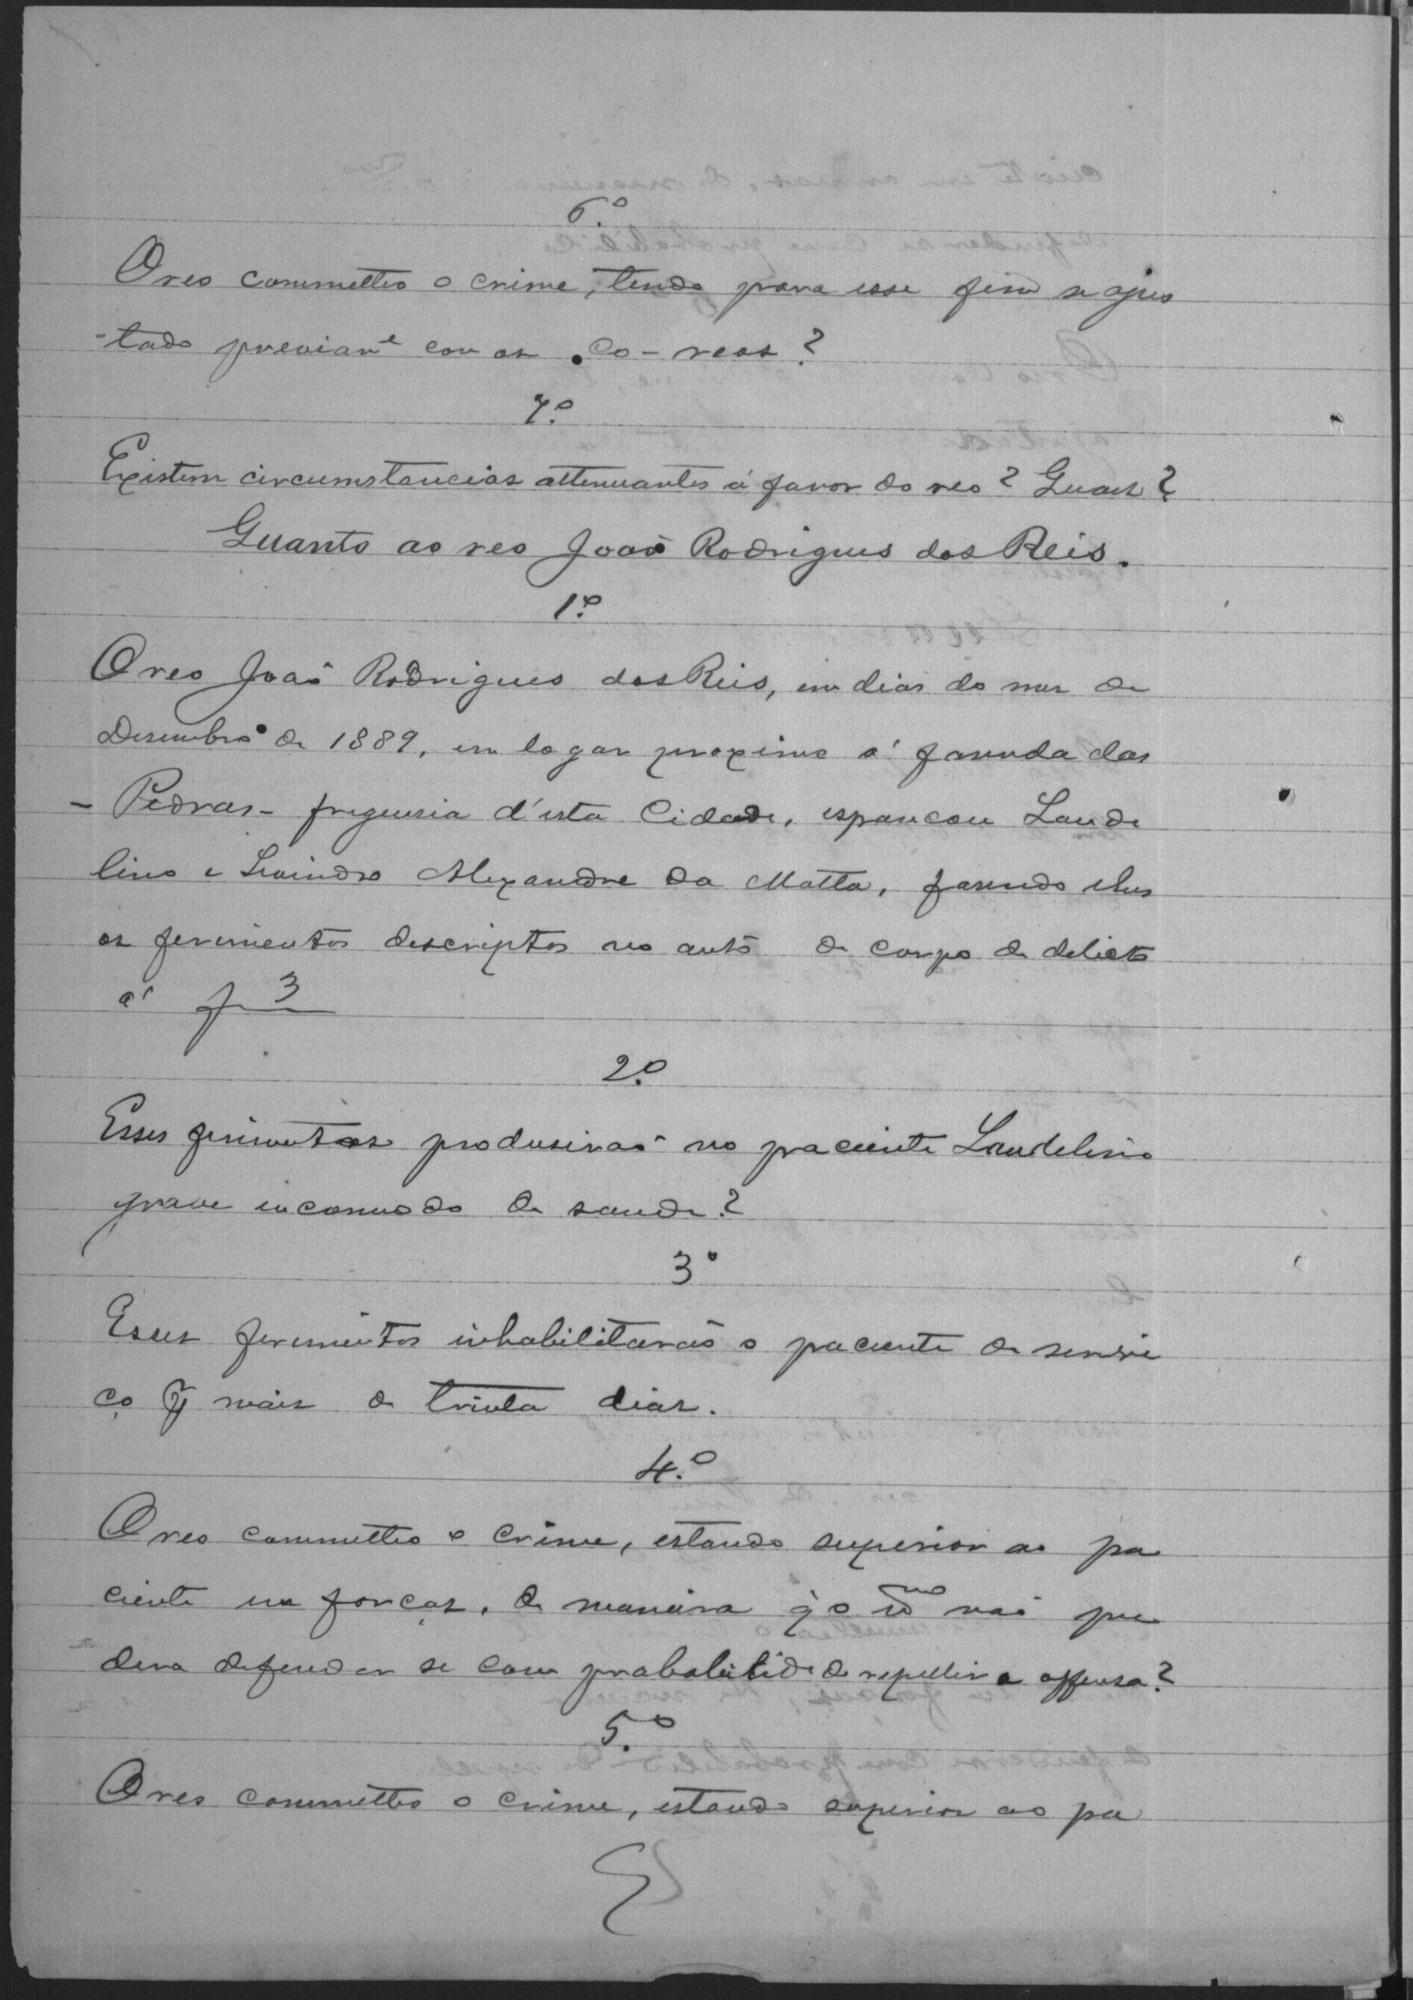 6.º
O reo commetteo o crime, tendo para esse fim se ajus
-tado previamᵉ com os co-reos?
7.º
Existem circumstancias attenuantes á favor do reo? Quaes?
Quanto ao reo João Rodrigues dos Reis.
1.º
O reo João Rodrigues dos Reis, em dias do mez de
Desembro de 1889, em logar proximo á fasenda das
- Pedras - freguesia d'esta Cidade, espancou Laude
lino e Leoindro Alexandre da Matta, fasendo lhes
os ferimentos descriptos no auto de corpo de delicto
á f 3
2.º
Esses ferimentos produsirão no paciente Laudelino
grave incommodo de saude?
3º
Esses ferimentos inhabilitarão o paciente de servi
ço p mais de trinta dias.
4.º
O reo commetteo o crime, estando superior ao pa
ciente em forças, de maneira q̃ o mᵐᵒ não pu
dera defender se com probabilidᵉ de repellir a offensa?
5.º
O reo commetteo o crime, estando superior ao pa